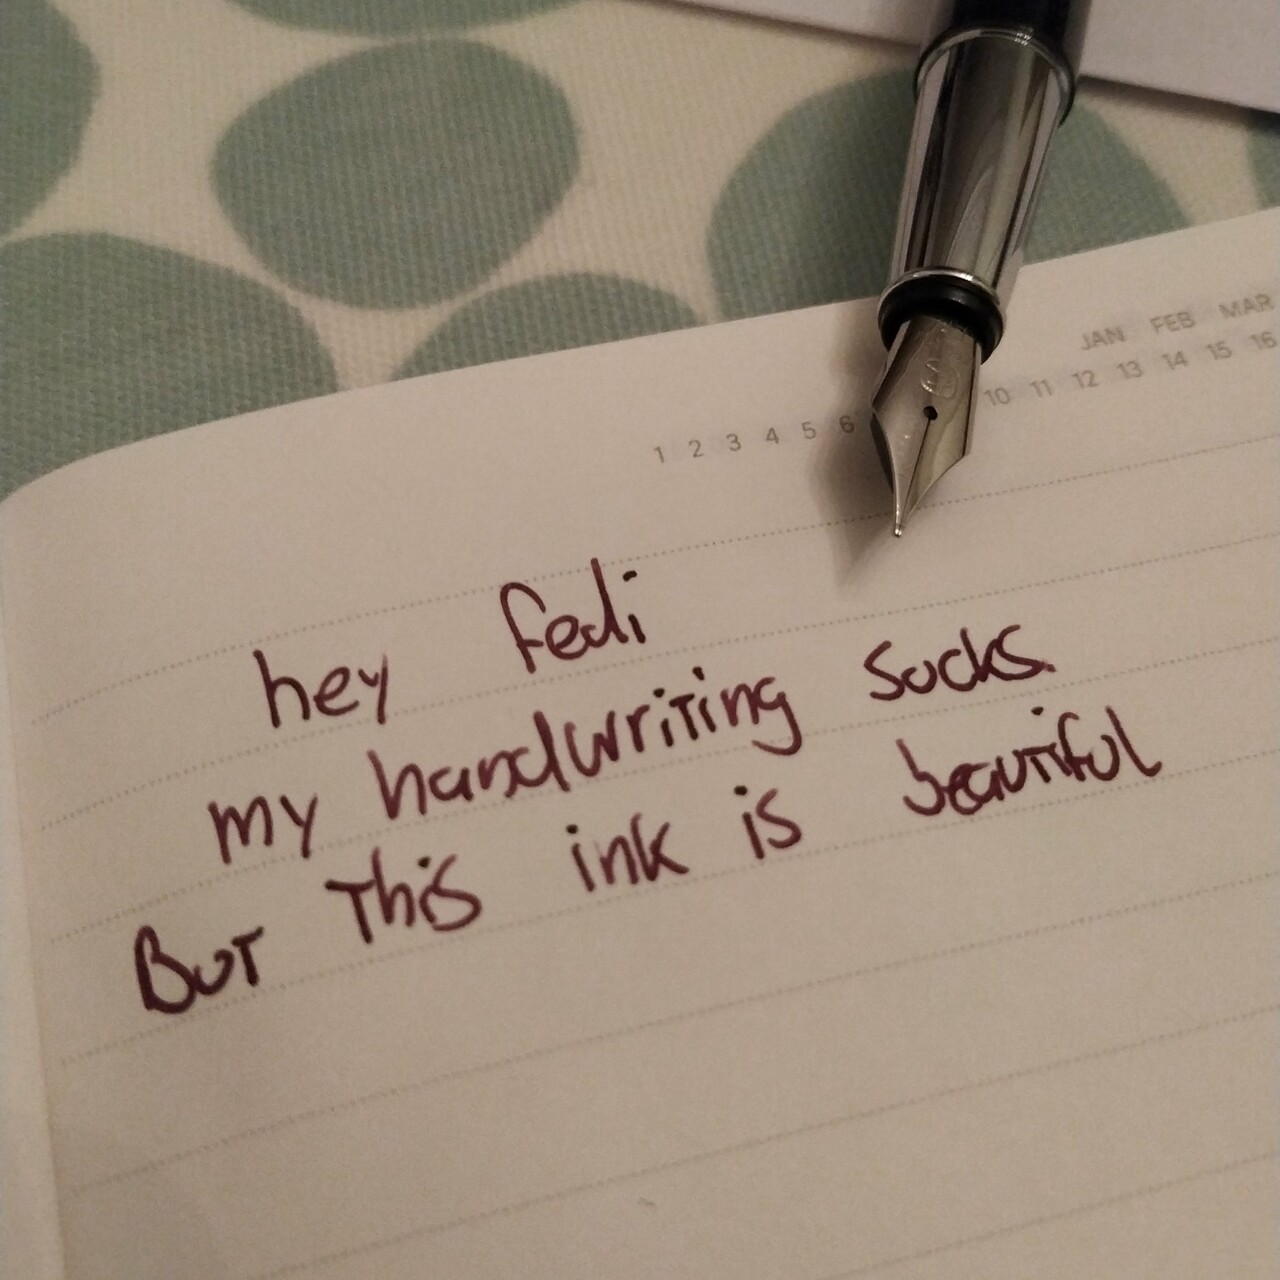 JAN FEB MAR
1 2 3 4 5 6 10 11 12 13 14 15 16
hey fedi
my handwriting sucks.
But This ink is beautiful